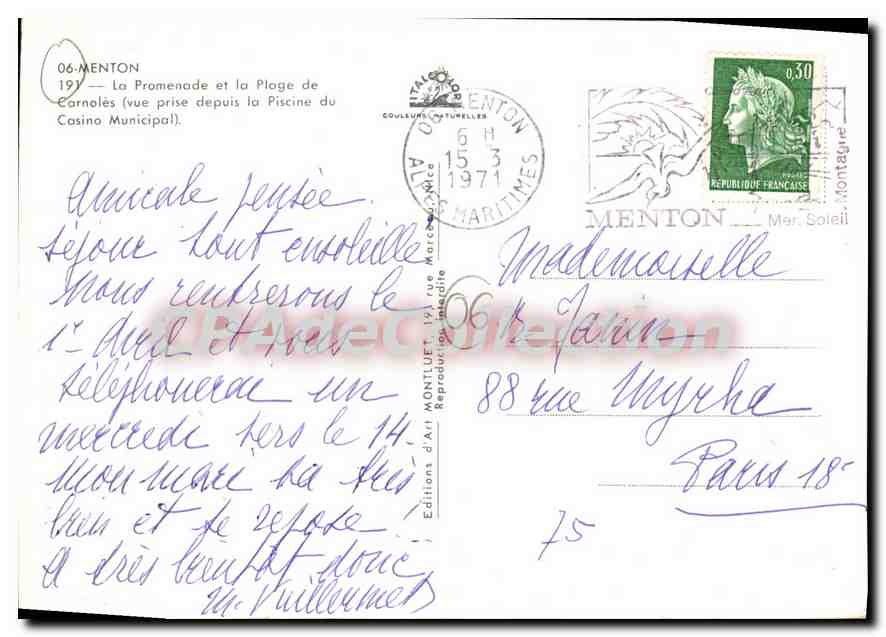 06-MENTON
191 — La Promenade et la Plage de
Carnolès (vue prise depuis la Piscine du
Casino Municipal).
ITALCOLOR
COULEURS NATURELLES
06 MENTON
6 H
15-3
1971
ALPES MARITIMES
MENTON
Mer. Soleil
Montagne
0,30
RÉPUBLIQUE FRANÇAISE
Amicale pensée.
Séjour tout ensoleillé
Nous rentrerons le
1er Avril et vous
téléphonerai un
mercredi vers le 14.
Mon mari va très
bien et se repose !
A très bientôt donc
M. Vuillermet
Editions d'Art MONTLUET, 19, rue Marceau, Nice
Reproduction interdite
06
Mademoiselle
Janin
88 rue Myrha
Paris 18e
75
CPAdeCollection